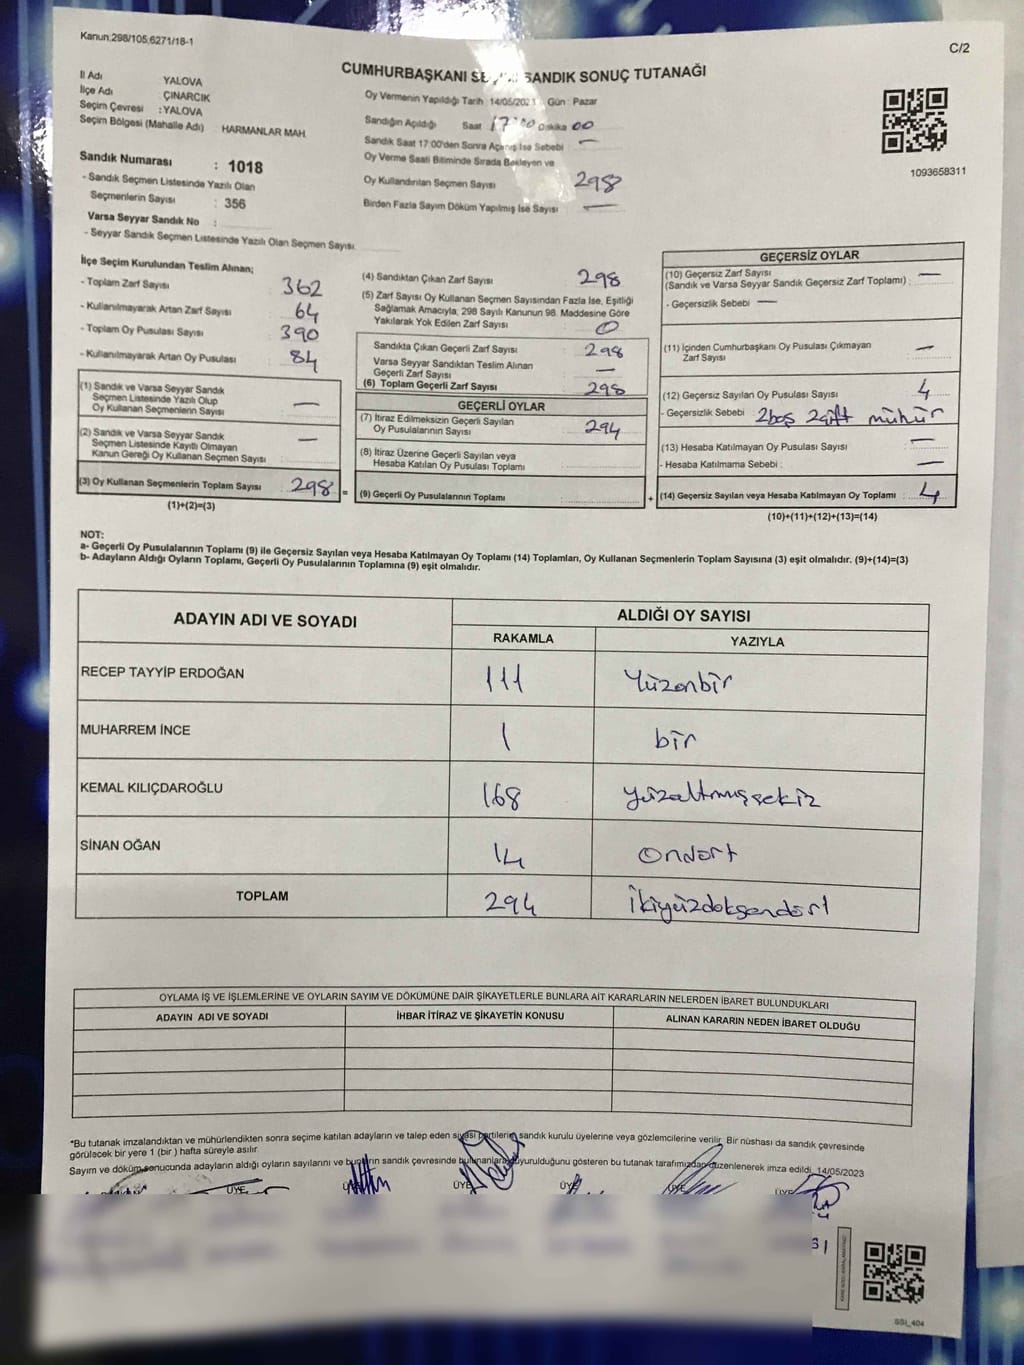 Kanun:298/105,6271/18-1
C/2
CUMHURBAŞKANI SANDIK SONUÇ TUTANAĞI
İl Adı YALOVA
İlçe Adı ÇINARCIK
Seçim Çevresi : YALOVA
Seçim Bölgesi (Mahalle Adı) : HARMANLAR MAH.
Sandık Numarası : 1018
- Sandık Seçmen Listesinde Yazılı Olan
Seçmenlerin Sayısı : 356
Varsa Seyyar Sandık No :
- Seyyar Sandık Seçmen Listesinde Yazılı Olan Seçmen Sayısı
Oy Vermenin Yapıldığı Tarih : 14/05/2023 Gün : Pazar
Sandığın Açıldığı Saat Dakika 00
Sandık Saat 17:00'den Sonra Açılmış İse Sebebi —
Oy Verme Saati Bitiminde Sırada Bekleyen ve
Oy Kullandırılan Seçmen Sayısı 298
Birden Fazla Sayım Döküm Yapılmış İse Sayısı —
1093658311
İlçe Seçim Kurulundan Teslim Alınan;
- Toplam Zarf Sayısı 362
- Kullanılmayarak Artan Zarf Sayısı 64
- Toplam Oy Pusulası Sayısı 390
- Kullanılmayarak Artan Oy Pusulası 84
(1) Sandık ve Varsa Seyyar Sandık
Seçmen Listesinde Yazılı Olup
Oy Kullanan Seçmenlerin Sayısı —
(2) Sandık ve Varsa Seyyar Sandık
Seçmen Listesinde Kayıtlı Olmayan
Kanun Gereği Oy Kullanan Seçmen Sayısı —
(3) Oy Kullanan Seçmenlerin Toplam Sayısı 298 =
(1)+(2)=(3)
(4) Sandıktan Çıkan Zarf Sayısı 298
(5) Zarf Sayısı Oy Kullanan Seçmen Sayısından Fazla İse, Eşitliği
Sağlamak Amacıyla; 298 Sayılı Kanunun 98. Maddesine Göre
Yakılarak Yok Edilen Zarf Sayısı 0
Sandıkta Çıkan Geçerli Zarf Sayısı 298
Varsa Seyyar Sandıktan Teslim Alınan
Geçerli Zarf Sayısı —
(6) Toplam Geçerli Zarf Sayısı 298
GEÇERLİ OYLAR
(7) İtiraz Edilmeksizin Geçerli Sayılan
Oy Pusulalarının Sayısı 294
(8) İtiraz Üzerine Geçerli Sayılan veya
Hesaba Katılan Oy Pusulası Toplamı
(9) Geçerli Oy Pusulalarının Toplamı +
GEÇERSİZ OYLAR
(10) Geçersiz Zarf Sayısı —
(Sandık ve Varsa Seyyar Sandık Geçersiz Zarf Toplamı) :
- Geçersizlik Sebebi —
(11) İçinden Cumhurbaşkanı Oy Pusulası Çıkmayan
Zarf Sayısı —
(12) Geçersiz Sayılan Oy Pusulası Sayısı 4
- Geçersizlik Sebebi : 2boş 2çift mühür
(13) Hesaba Katılmayan Oy Pusulası Sayısı —
- Hesaba Katılmama Sebebi : —
(14) Geçersiz Sayılan veya Hesaba Katılmayan Oy Toplamı : 4
(10)+(11)+(12)+(13)=(14)
NOT:
a- Geçerli Oy Pusulalarının Toplamı (9) ile Geçersiz Sayılan veya Hesaba Katılmayan Oy Toplamı (14) Toplamları, Oy Kullanan Seçmenlerin Toplam Sayısına (3) eşit olmalıdır. (9)+(14)=(3)
b- Adayların Aldığı Oyların Toplamı, Geçerli Oy Pusulalarının Toplamına (9) eşit olmalıdır.
ADAYIN ADI VE SOYADI ALDIĞI OY SAYISI
RAKAMLA YAZIYLA
RECEP TAYYİP ERDOĞAN 111 Yüzonbir
MUHARREM İNCE 1 bir
KEMAL KILIÇDAROĞLU 168 yüzaltmışsekiz
SİNAN OĞAN 14 Ondört
TOPLAM 294 İkiyüzdoksandört
OYLAMA İŞ VE İŞLEMLERİNE VE OYLARIN SAYIM VE DÖKÜMÜNE DAİR ŞİKAYETLERLE BUNLARA AİT KARARLARIN NELERDEN İBARET BULUNDUKLARI
ADAYIN ADI VE SOYADI İHBAR İTİRAZ VE ŞİKAYETİN KONUSU ALINAN KARARIN NEDEN İBARET OLDUĞU
*Bu tutanak imzalandıktan ve mühürlendikten sonra seçime katılan adayların ve talep eden siyasi partilerin sandık kurulu üyelerine veya gözlemcilerine verilir. Bir nüshası da sandık çevresinde
görülecek bir yere 1 (bir ) hafta süreyle asılır.
Sayım ve döküm sonucunda adayların aldığı oyların sayılarını ve bunların sandık çevresinde bulunanlara duyurulduğunu gösteren bu tutanak tarafımızdan düzenlenerek imza edildi. 14/05/2023
ÜYE ÜYE ÜYE ÜYE ÜYE ÜYE
SSI_404